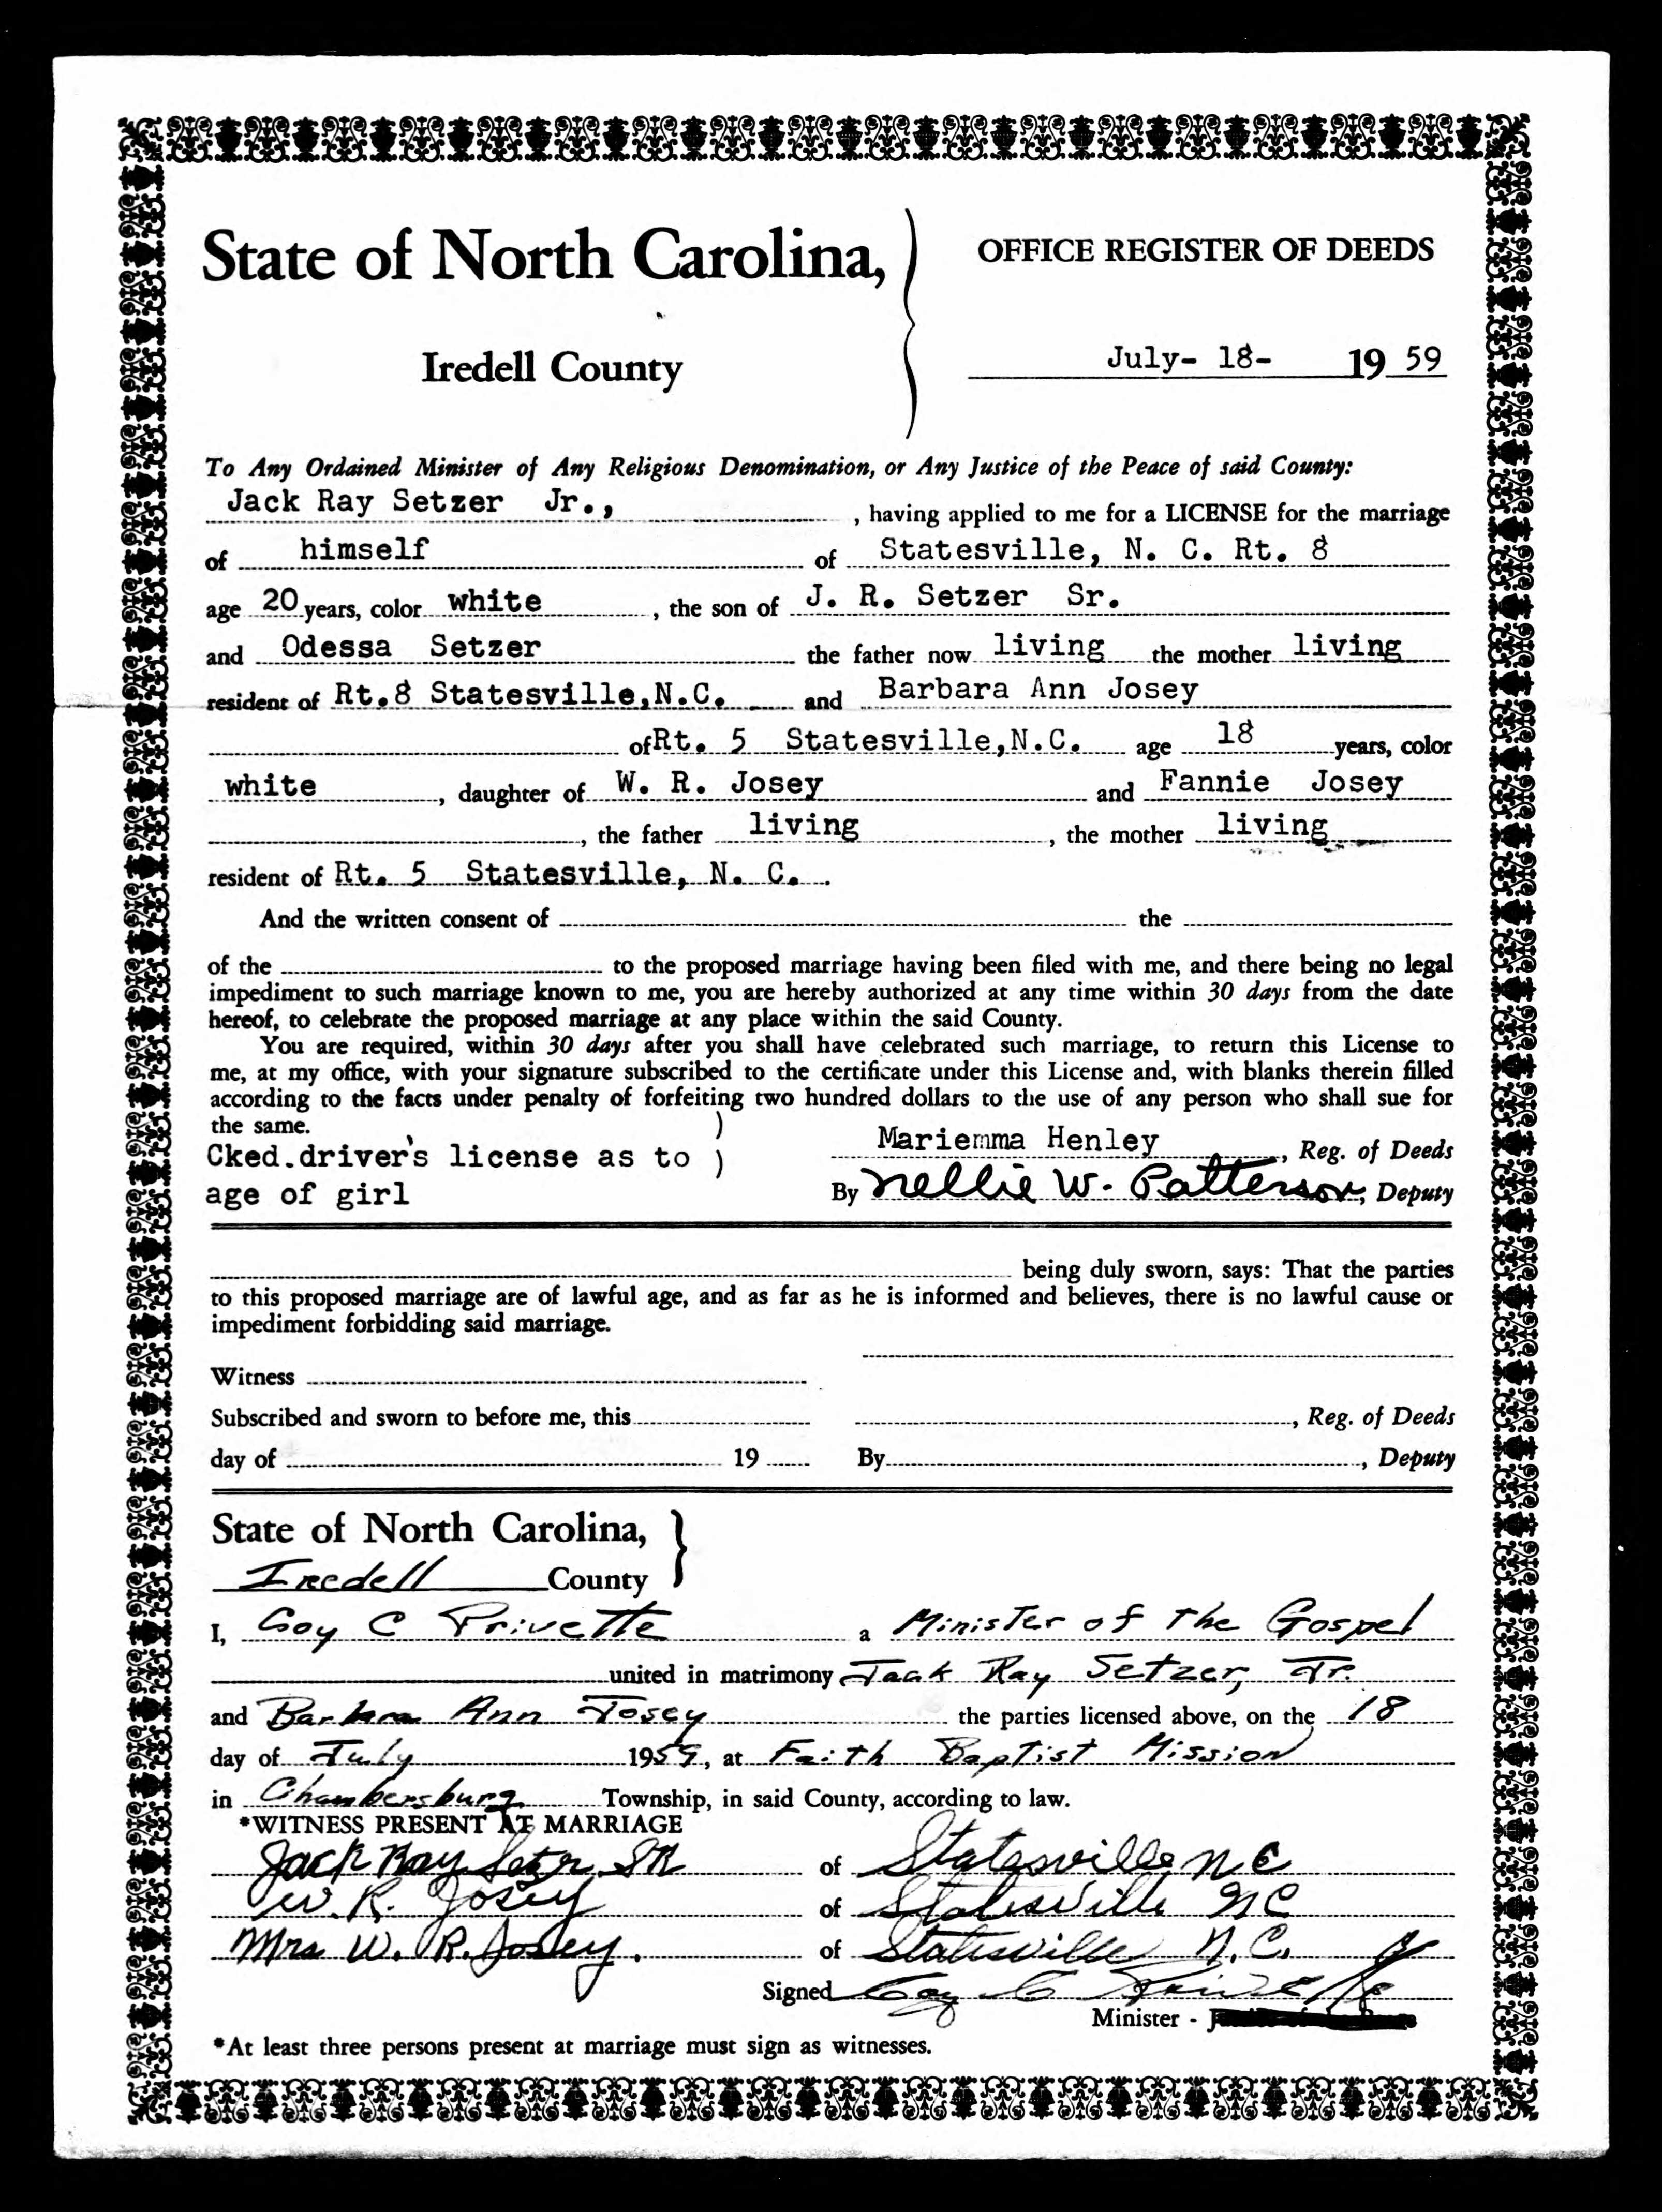 State of North Carolina,
OFFICE REGISTER OF DEEDS
Iredell County
July- 18- 19 59
To Any Ordained Minister of Any Religious Denomination, or Any Justice of the Peace of said County:
Jack Ray Setzer Jr., , having applied to me for a LICENSE for the marriage
of himself of Statesville, N. C. Rt. 8
age 20 years, color white , the son of J. R. Setzer Sr.
and Odessa Setzer the father now living the mother living
resident of Rt.8 Statesville,N.C. and Barbara Ann Josey
of Rt. 5 Statesville,N.C. age 18 years, color
white , daughter of W. R. Josey and Fannie Josey
, the father living , the mother living
resident of Rt. 5 Statesville, N. C.
And the written consent of the
of the to the proposed marriage having been filed with me, and there being no legal
impediment to such marriage known to me, you are hereby authorized at any time within 30 days from the date
hereof, to celebrate the proposed marriage at any place within the said County.
You are required, within 30 days after you shall have celebrated such marriage, to return this License to
me, at my office, with your signature subscribed to the certificate under this License and, with blanks therein filled
according to the facts under penalty of forfeiting two hundred dollars to the use of any person who shall sue for
the same. )
Cked.driver's license as to )
Mariemma Henley , Reg. of Deeds
age of girl
By Nellie W. Patterson, Deputy
being duly sworn, says: That the parties
to this proposed marriage are of lawful age, and as far as he is informed and believes, there is no lawful cause or
impediment forbidding said marriage.
Witness
Subscribed and sworn to before me, this , Reg. of Deeds
day of 19 By , Deputy
State of North Carolina,
Iredell County
I, Coy C Privette a Minister of the Gospel
united in matrimony Jack Ray Setzer, Jr.
and Barbara Ann Josey the parties licensed above, on the 18
day of July 1959, at Faith Baptist Mission
in Chambersburg Township, in said County, according to law.
*WITNESS PRESENT AT MARRIAGE
Jack Ray Setzer SR of Statesville N C
W. R. Josey of Statesville NC
Mrs W. R. Josey. of Statesville N.C.
Signed Coy C Privette
Minister -
*At least three persons present at marriage must sign as witnesses.